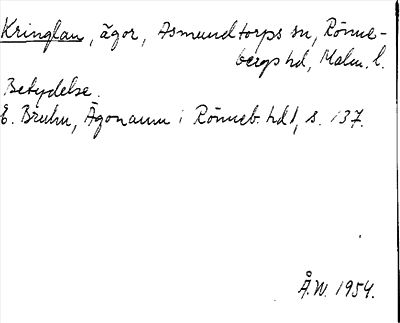 Kringlan, ägor, Asmundtorps sn, Rönne-
bergs hd, Malm. l.
Betydelse.
E. Bruhn, Ägonamn i Rönneb. hd 1, s. 137.
Å.W. 1954.